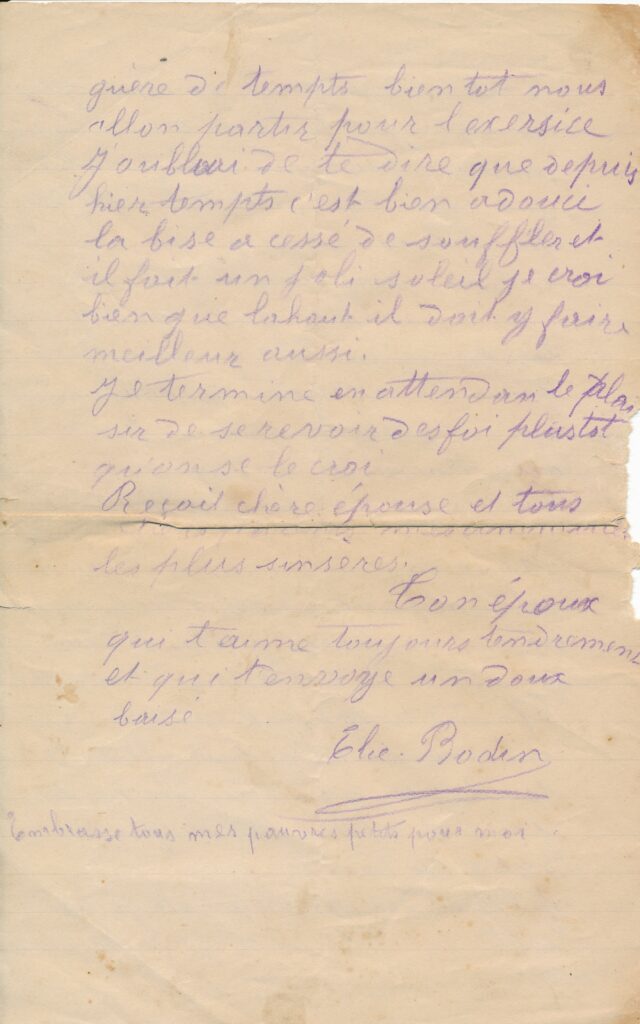 guère de tempts bientot nous
allon partir pour l'exersice
J'oubliai de te dire que depuis
hier tempts c'est bien adouci
la bise a cessé de souffler et
il fait un joli soleil je croi
bien que lahaut il doit y faire
meilleur aussi.
Je termine en attendan le plai
sir de se revoir desfoi plustot
qu'on se le croi
Reçoit chère épouse et tous
mes
les plus sinsères.
Ton époux
qui t'aime toujours tendrement
et qui t'envoye un doux
baisé
Elie. Bodin
Embrasse tous mes pauvres petits pour moi.